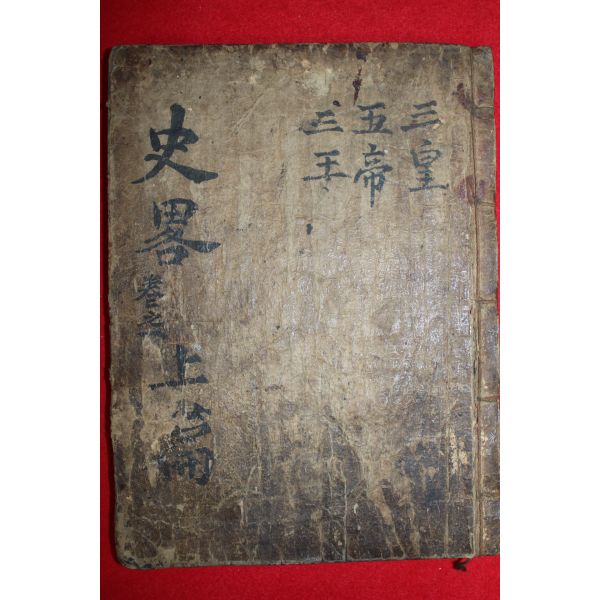 三皇
五帝
三王
史畧
卷之一
上篇